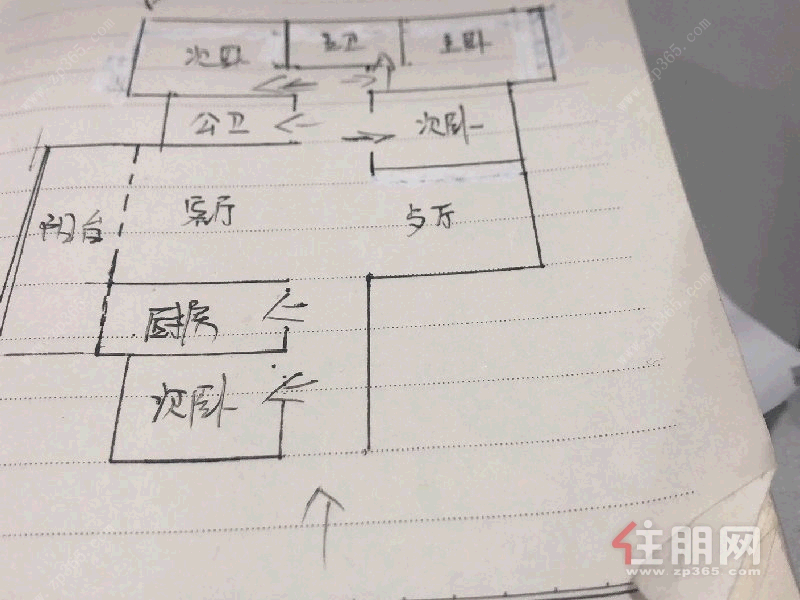 次卧 主卫 主卧
公卫 次卧
阳台 客厅 与厅
厨房
次卧
住朋网
www.zp365.com